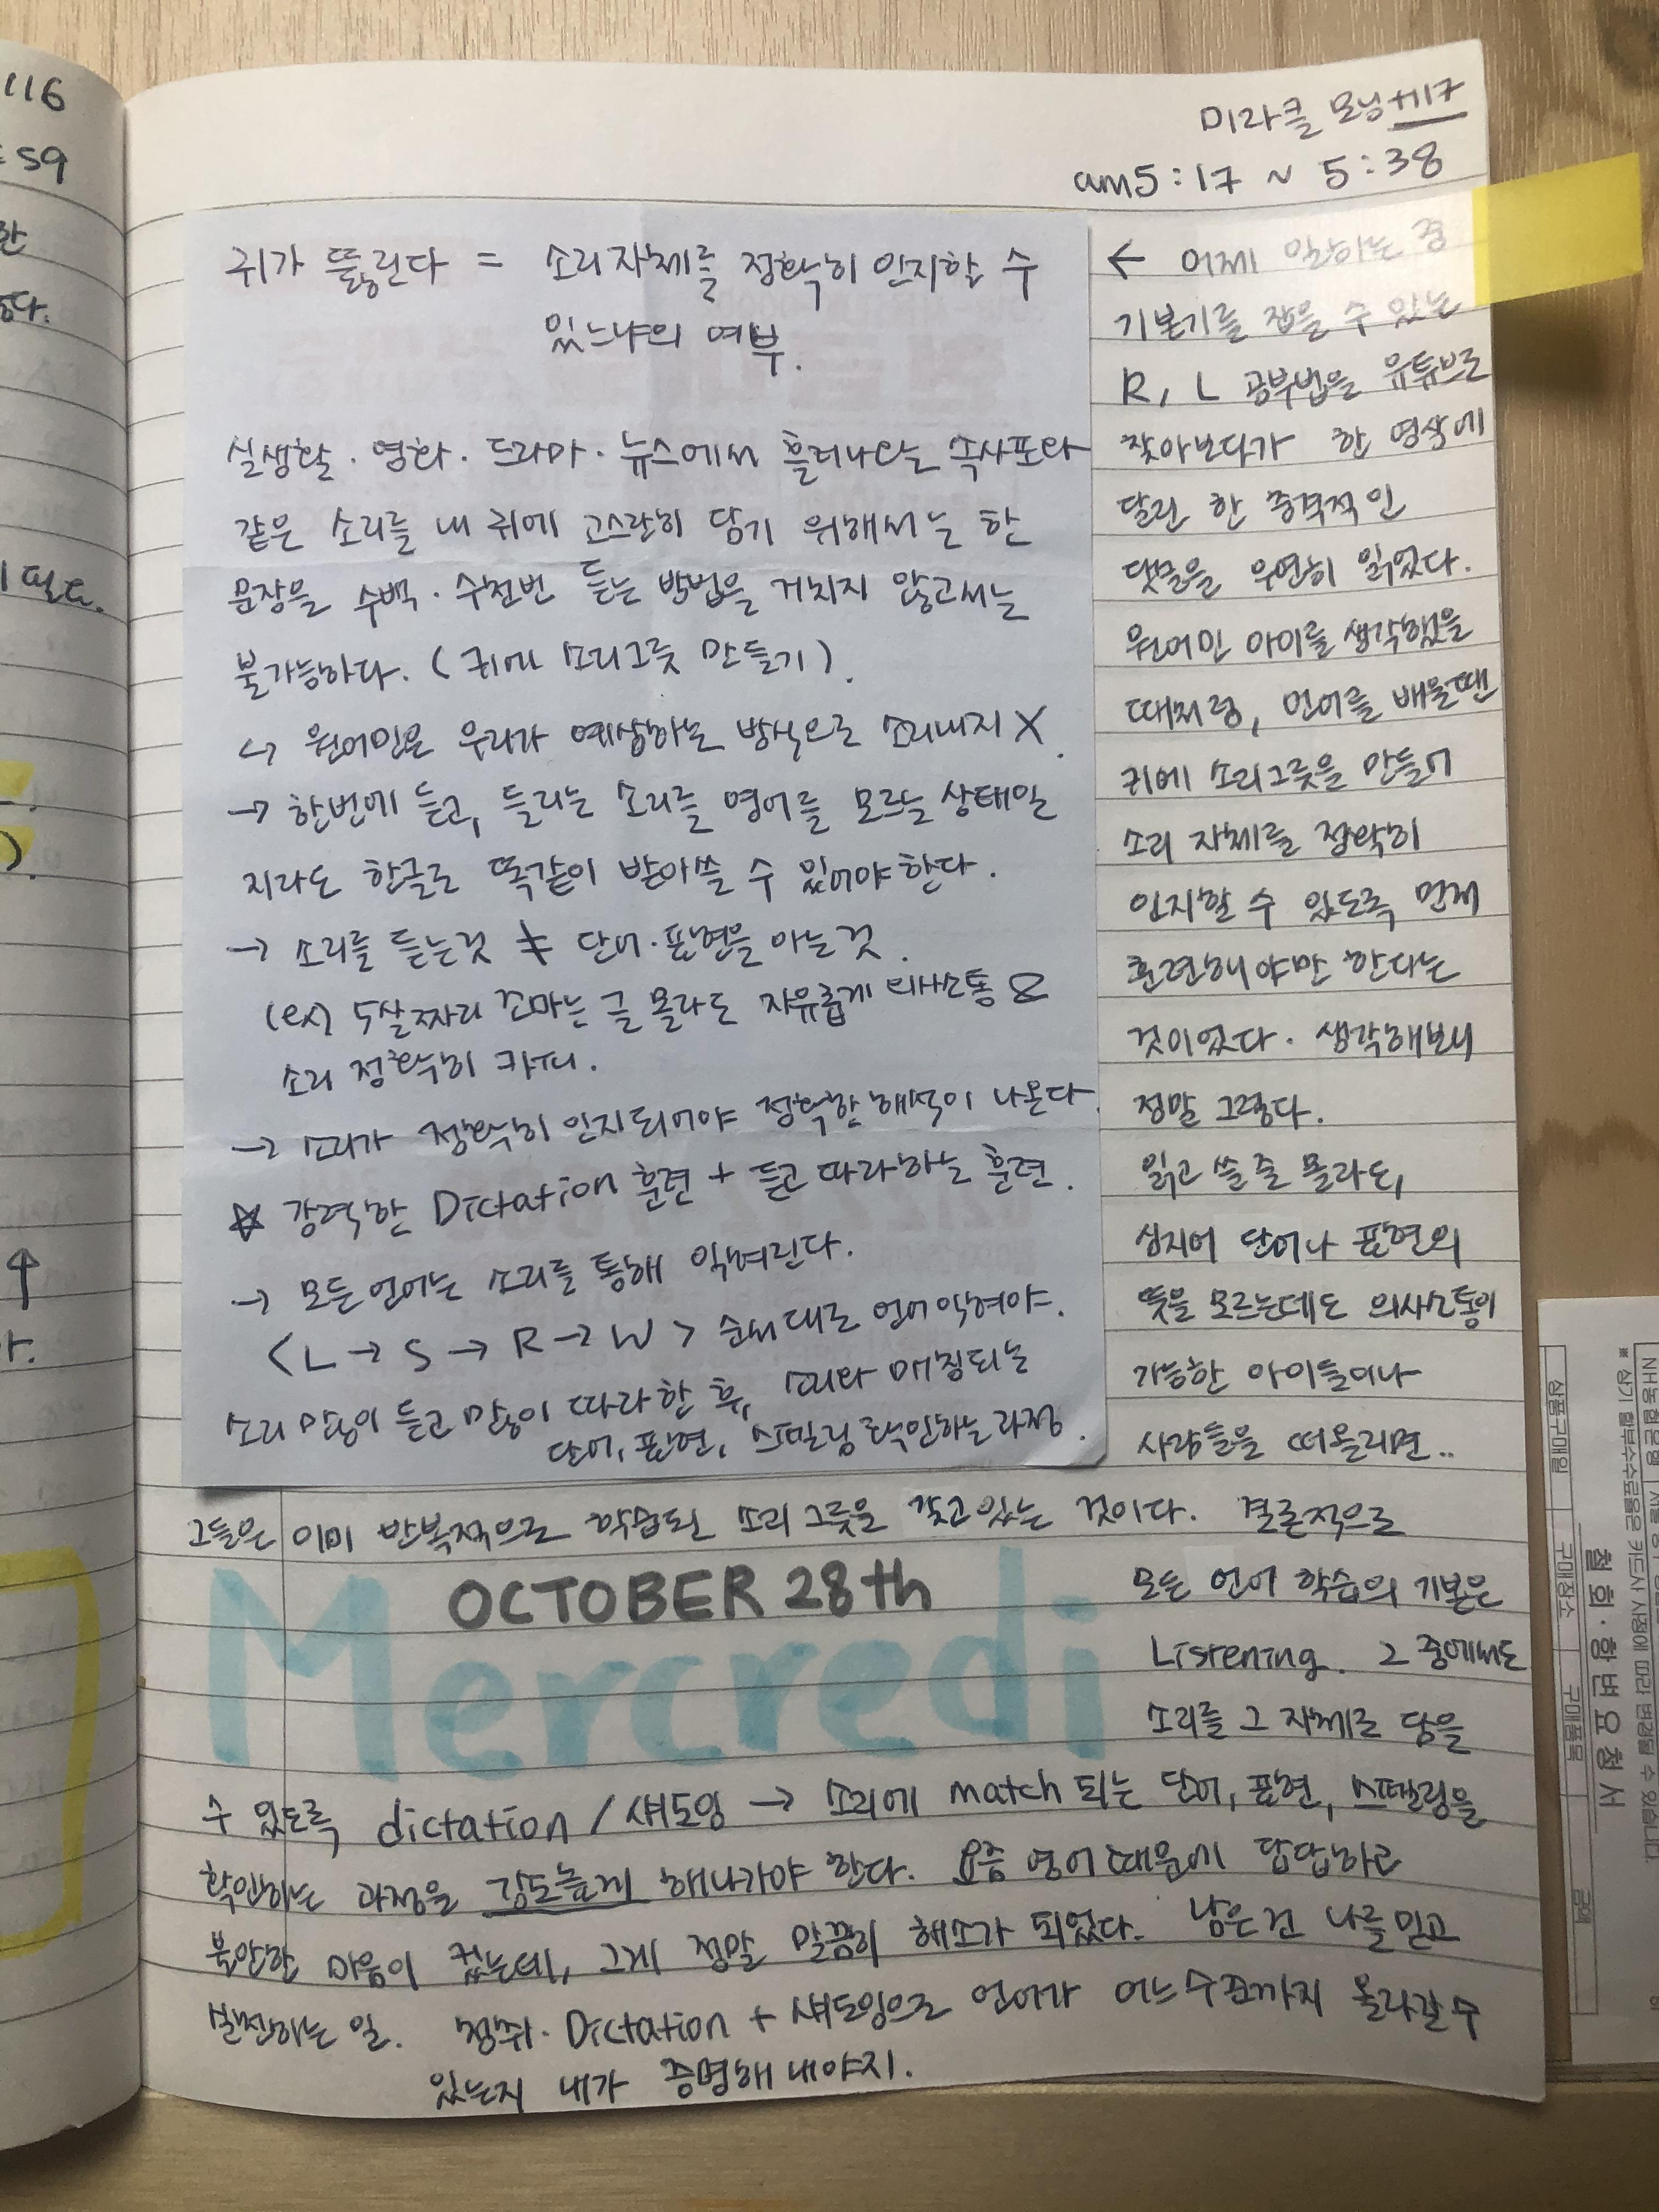 116
59
미라클 모닝 +117
am5:17 ~ 5:38
귀가 뚫린다 = 소리자체를 정확히 인지할 수
있느냐의 여부.
실생활·영화·드라마·뉴스에서 흘러나오는 속사포와
같은 소리를 내 귀에 고스란히 담기 위해서는 한
문장을 수백·수천번 듣는 방법을 거치지 않고서는
불가능하다. (귀에 소리그릇 만들기).
↳ 원어민은 우리가 예상하는 방식으로 소리내지 X.
→ 한번에 듣고, 들리는 소리를 영어를 모르는 상태일
지라도 한글로 똑같이 받아쓸 수 있어야한다.
→ 소리를 듣는것 ≠ 단어·표현을 아는것.
(ex) 5살짜리 꼬마는 글 몰라도 자유롭게 의사소통
소리 정확히 카피.
→ 소리가 정확히 인지되어야 정확한 해석이 나온다.
☆ 강력한 Dictation 훈련 + 듣고 따라하는 훈련.
→ 모든언어는 소리를 통해 익혀진다.
<L → S → R → W> 순서대로 언어익혀야.
소리 많이 듣고 많이 따라한 후, 소리와 매칭되는
단어, 표현, 스펠링 확인하는 과정.
← 어제 일하는 중
기본기를 잡을 수 있는
R, L 공부법을 유튜브로
찾아보다가 한 영상에
달린 한 충격적인
댓글을 우연히 읽었다.
원어민 아이를 생각했을
때처럼, 언어를 배울땐
귀에 소리그릇을 만들어
소리 자체를 정확히
인지할 수 있도록 먼저
훈련해야만 한다는
것이었다. 생각해보니
정말 그렇다.
읽고 쓸 줄 몰라도,
심지어 단어나 표현의
뜻을 모르는데도 의사소통이
가능한 아이들이나
사람들을 떠올리면..
그들은 이미 반복적으로 학습된 소리 그릇을 갖고있는 것이다. 결론적으로
OCTOBER 28th
Mercredi
모든 언어 학습의 기본은
Listening. 그 중에서도
소리를 그 자체로 담을
수 있도록 dictation / 섀도잉 → 소리에 match 되는 단어, 표현, 스펠링을
확인하는 과정을 강도높게 해나가야 한다. 요즘 영어 때문에 답답하고
불안한 마음이 컸는데, 그게 정말 말끔히 해소가 되었다. 남은건 나를 믿고
실천하는 일. 정취·Dictation + 섀도잉으로 언어가 어느수준까지 올라갈 수
있는지 내가 증명해 내야지.
철회·항변요청서
상품구매일
구매장소
구매품목
금액